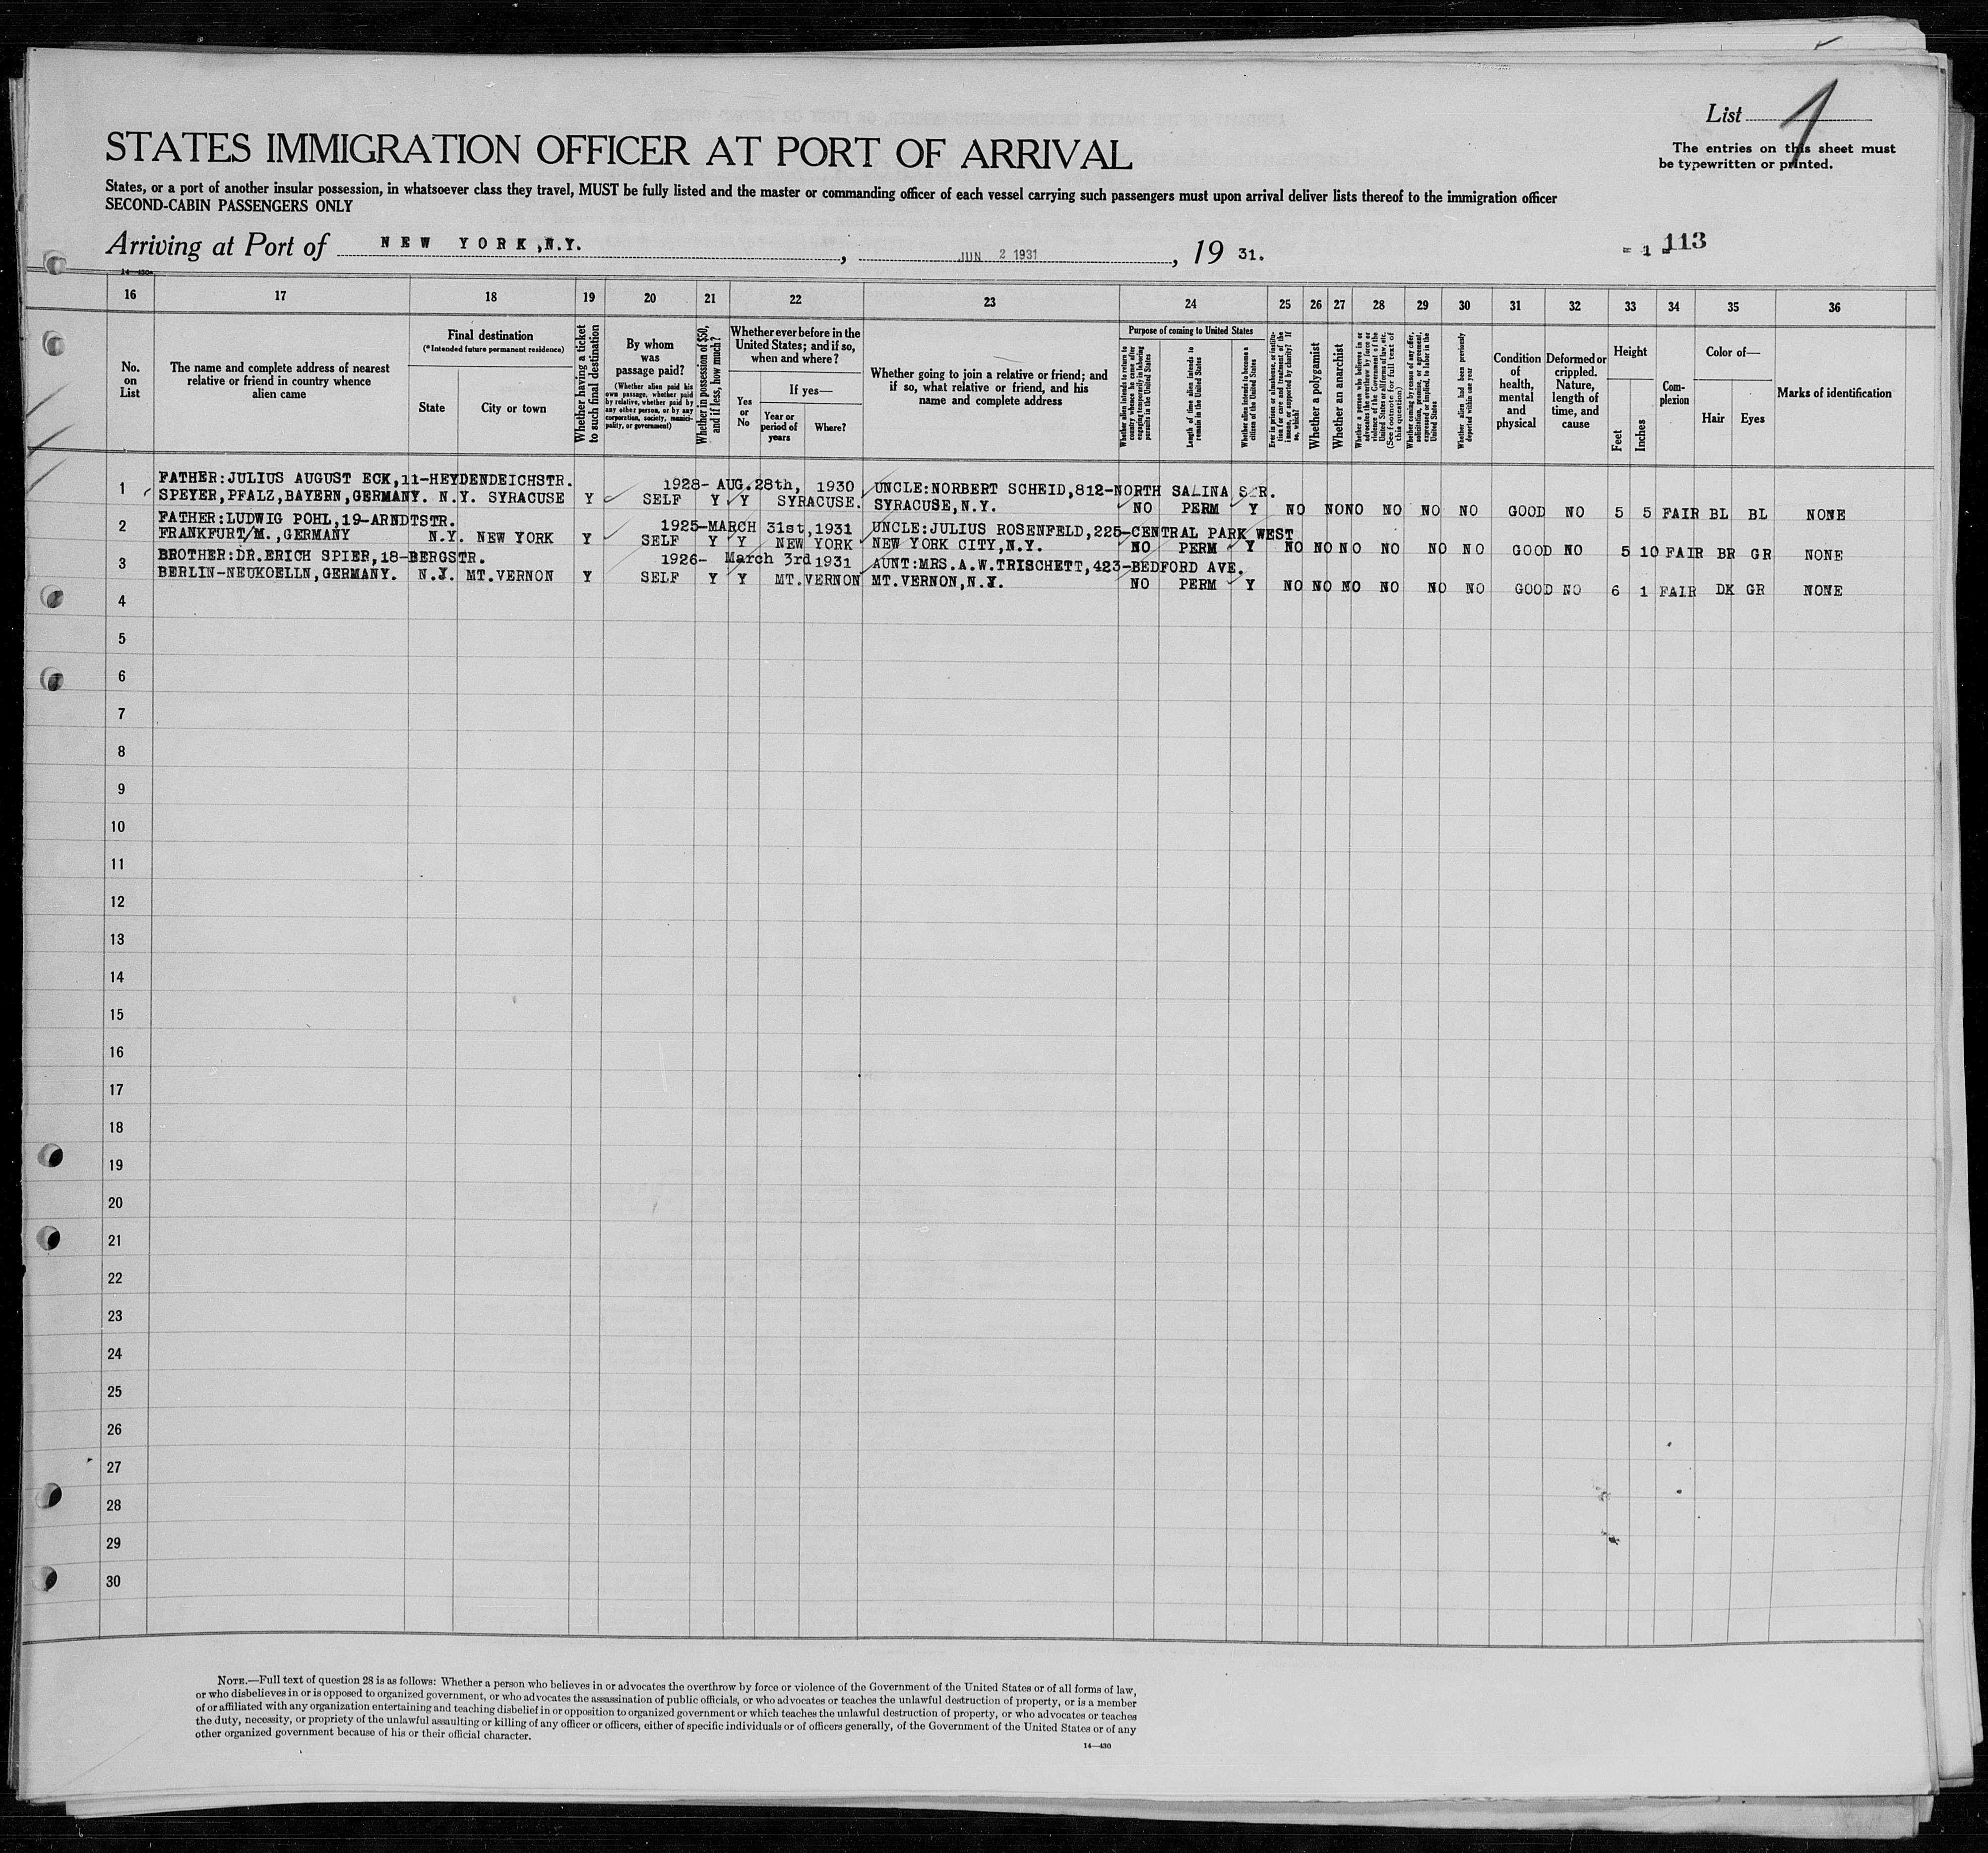 List 1
The entries on this sheet must
be typewritten or printed.
STATES IMMIGRATION OFFICER AT PORT OF ARRIVAL
States, or a port of another insular possession, in whatsoever class they travel, MUST be fully listed and the master or commanding officer of each vessel carrying such passengers must upon arrival deliver lists thereof to the immigration officer
SECOND-CABIN PASSENGERS ONLY
Arriving at Port of NEW YORK,N.Y. , JUN 2 1931 , 19 31.
= 1 = 113
14—430
16 17 18 19 20 21 22 23 24 25 26 27 28 29 30 31 32 33 34 35 36
No. on List
The name and complete address of nearest relative or friend in country whence alien came
Final destination
(*Intended future permanent residence)
State
City or town
Whether having a ticket to such final destination
By whom was passage paid?
(Whether alien paid his own passage, whether paid by relative, whether paid by any other person, or by any corporation, society, municipality, or government)
Whether in possession of $50, and if less, how much?
Whether ever before in the United States; and if so, when and where?
Yes or No
If yes—
Year or period of years
Where?
Whether going to join a relative or friend; and if so, what relative or friend, and his name and complete address
Purpose of coming to United States
Whether alien intends to return to country whence he came after engaging temporarily in laboring pursuits in the United States
Length of time alien intends to remain in the United States
Whether alien intends to become a citizen of the United States
Ever in prison or almshouse, or institution for care and treatment of the insane, or supported by charity? If so, which?
Whether a polygamist
Whether an anarchist
Whether a person who believes in or advocates the overthrow by force or violence of the Government of the United States or all forms of law, etc. (See footnote for full text of this question)
Whether coming by reason of any offer, solicitation, promise, or agreement, expressed or implied, to labor in the United States
Whether alien had been previously deported within one year
Condition of health, mental and physical
Deformed or crippled. Nature, length of time, and cause
Height
Feet
Inches
Complexion
Color of—
Hair
Eyes
Marks of identification
FATHER:JULIUS AUGUST ECK,11-HEYDENDEICHSTR. 1928- AUG.28th, 1930 UNCLE:NORBERT SCHEID,812-NORTH SALINA STR.
1 SPEYER,PFALZ,BAYERN,GERMANY. N.Y. SYRACUSE Y SELF Y Y SYRACUSE. SYRACUSE,N.Y. NO PERM Y NO NO NO NO NO NO GOOD NO 5 5 FAIR BL BL NONE
FATHER:LUDWIG POHL,19-ARNDTSTR. 1925-MARCH 31st,1931 UNCLE:JULIUS ROSENFELD,225-CENTRAL PARK WEST
2 FRANKFURT/M.,GERMANY N.Y. NEW YORK Y SELF Y Y NEW YORK NEW YORK CITY,N.Y. NO PERM Y NO NO NO NO NO NO GOOD NO 5 10 FAIR BR GR NONE
BROTHER:DR.ERICH SPIER,18-BERGSTR. 1926- March 3rd 1931 AUNT:MRS.A.W.TRISCHETT,423-BEDFORD AVE.
3 BERLIN-NEUKOELLN,GERMANY. MT.VERNON Y SELF Y Y MT.VERNON MT.VERNON, NO PERM Y NO NO NO NO NO NO GOOD NO 6 1 FAIR DK GR NONE
4
5
6
7
8
9
10
11
12
13
14
15
16
17
18
19
20
21
22
23
24
25
26
27
28
29
30
NOTE.—Full text of question 28 is as follows: Whether a person who believes in or advocates the overthrow by force or violence of the Government of the United States or of all forms of law,
or who disbelieves in or is opposed to organized government, or who advocates the assassination of public officials, or who advocates or teaches the unlawful destruction of property, or is a member
of or affiliated with any organization entertaining and teaching disbelief in or opposition to organized government or which teaches the unlawful destruction of property, or who advocates or teaches
the duty, necessity, or propriety of the unlawful assaulting or killing of any officer or officers, either of specific individuals or of officers generally, of the Government of the United States or of any
other organized government because of his or their official character.
14—430